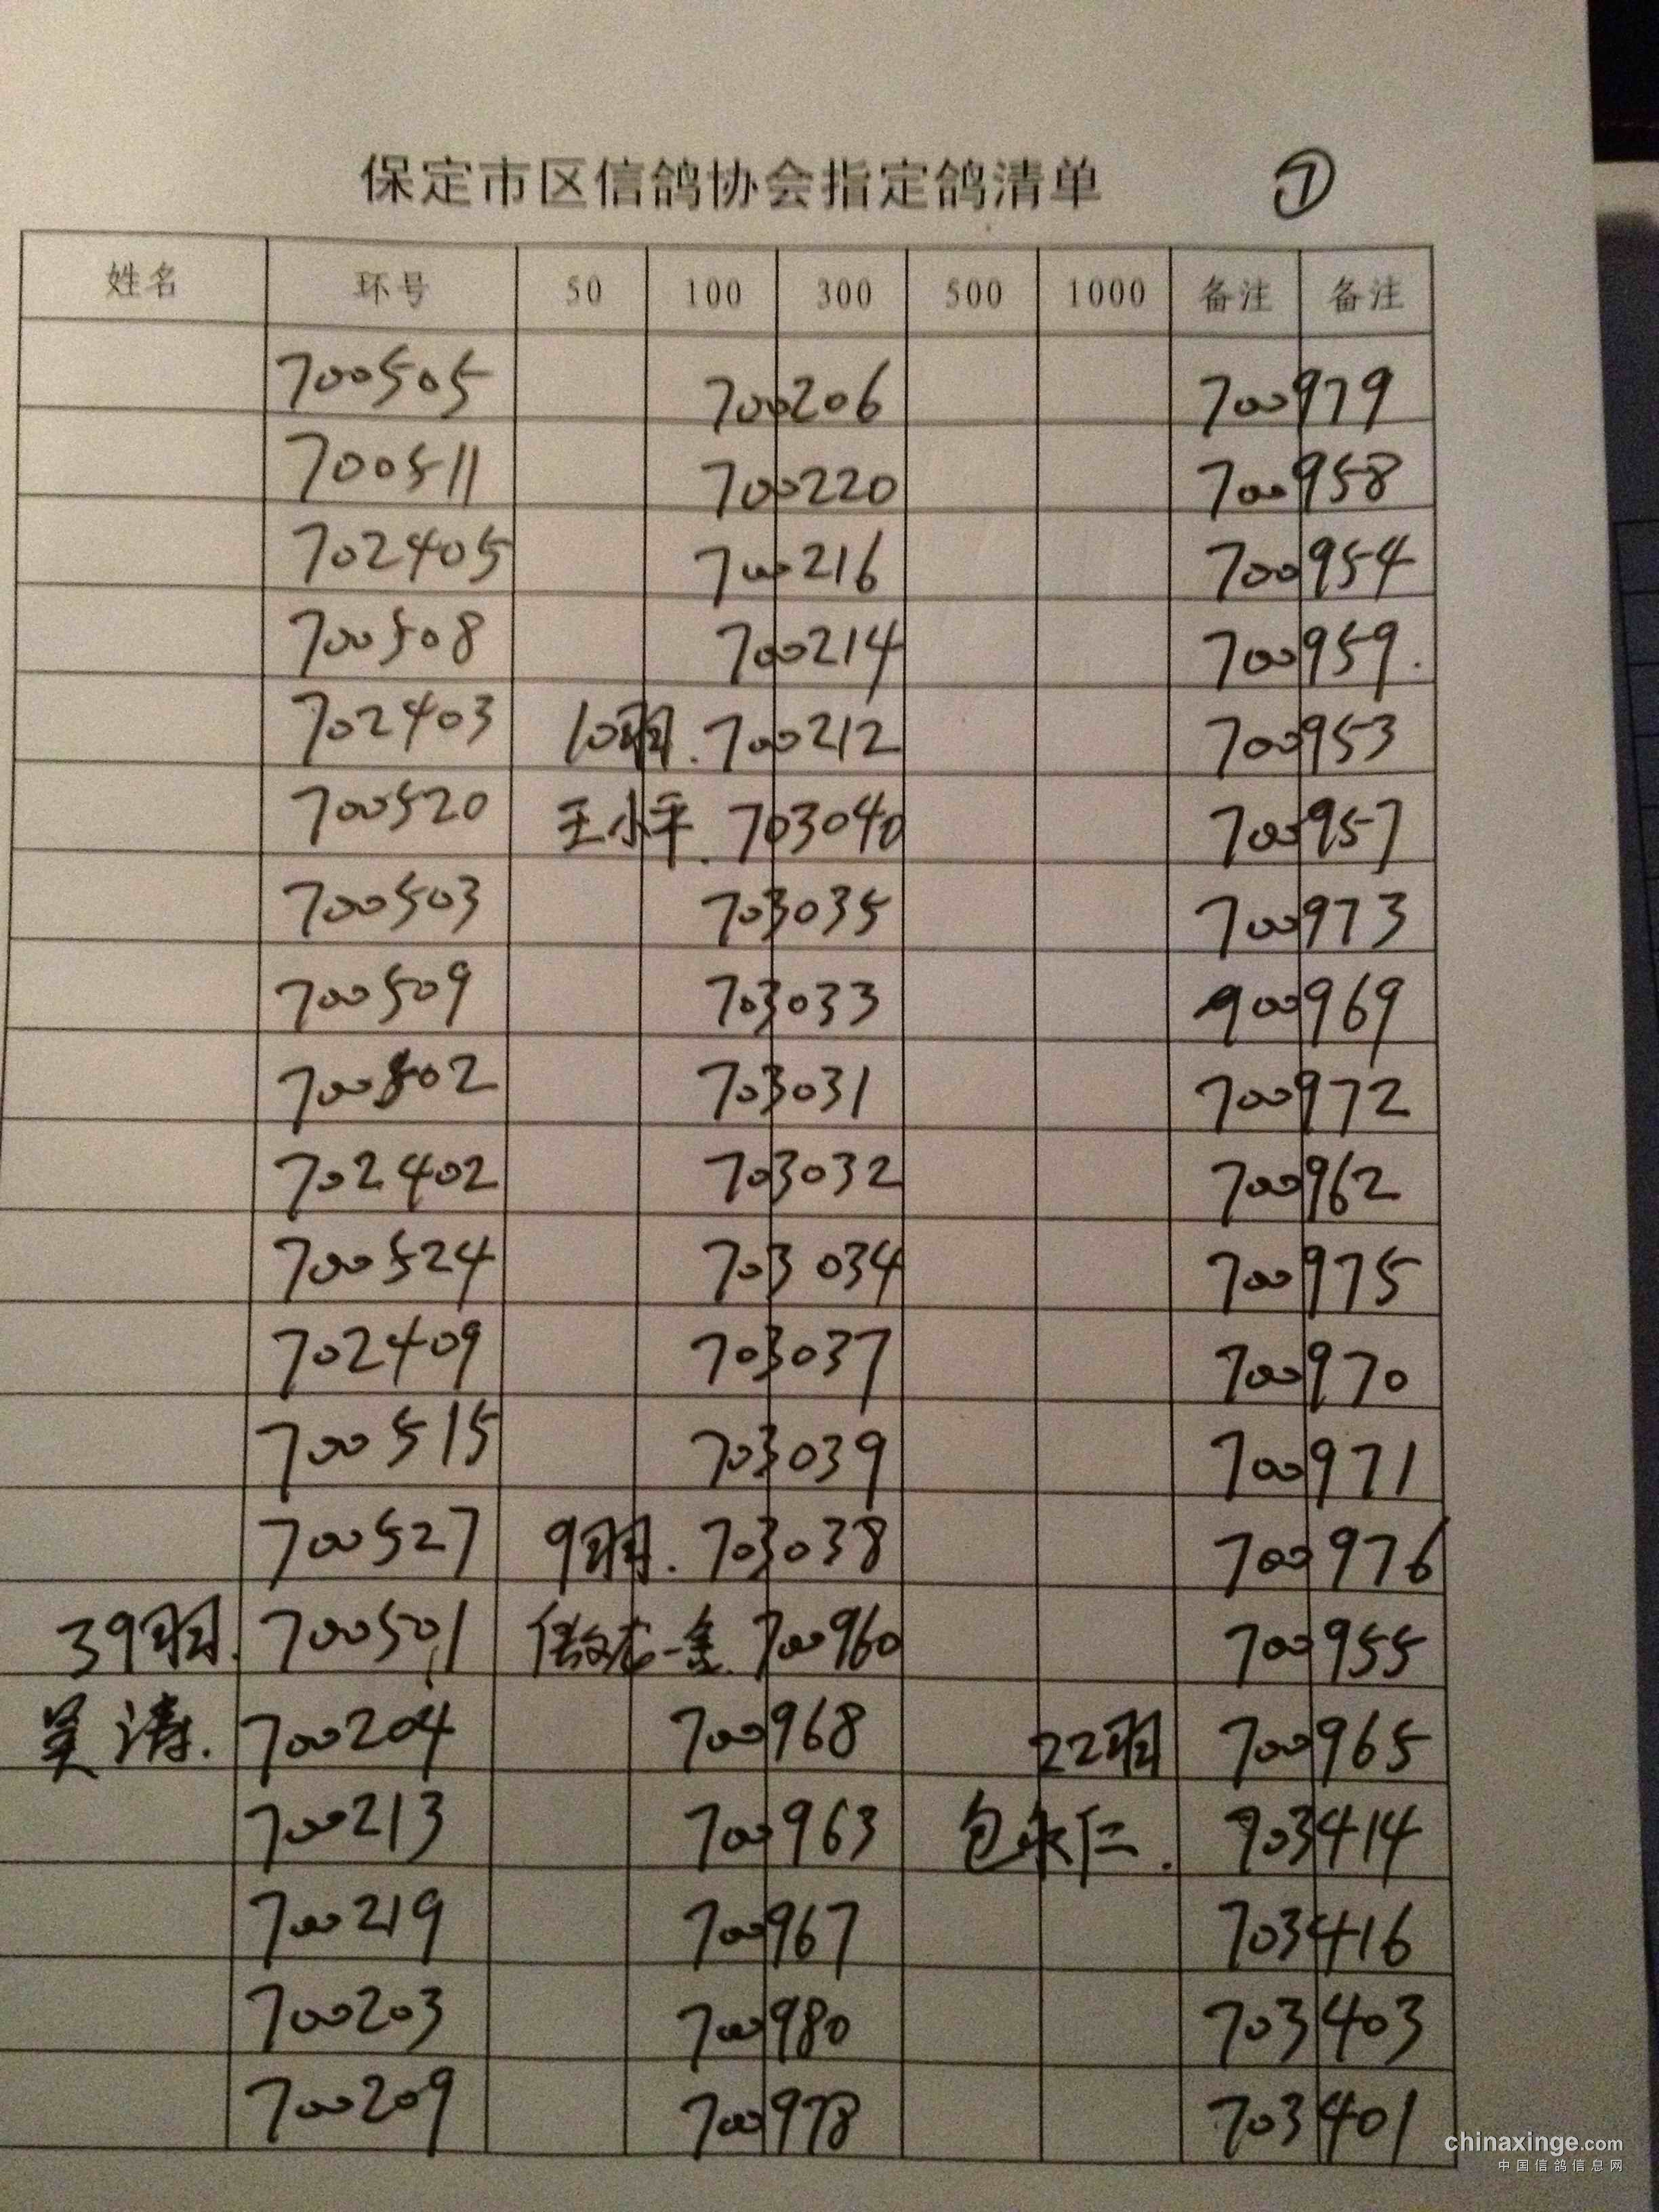 保定市区信鸽协会指定鸽清单 ⑦
姓名 环号 50 100 300 500 1000 备注 备注
700505 700206 700979
700511 700220 700958
702405 700216 700954
700508 700214 700959.
702403 10羽. 700212 700953
700520 王小平. 703040 700957
700503 703035 700973
700509 703033 900969
700802 703031 700972
702402 703032 700962
700524 703034 700975
702409 703037 700970
700515 703039 700971
700527 9羽. 703038 700976
39羽. 700501 700960 700955
吴涛. 700204 700968 22羽 700965
700213 700963 包永仁. 703414
700219 700967 703416
700203 700980 703403
700209 700978 703401
chinaxinge.com
中国信鸽信息网